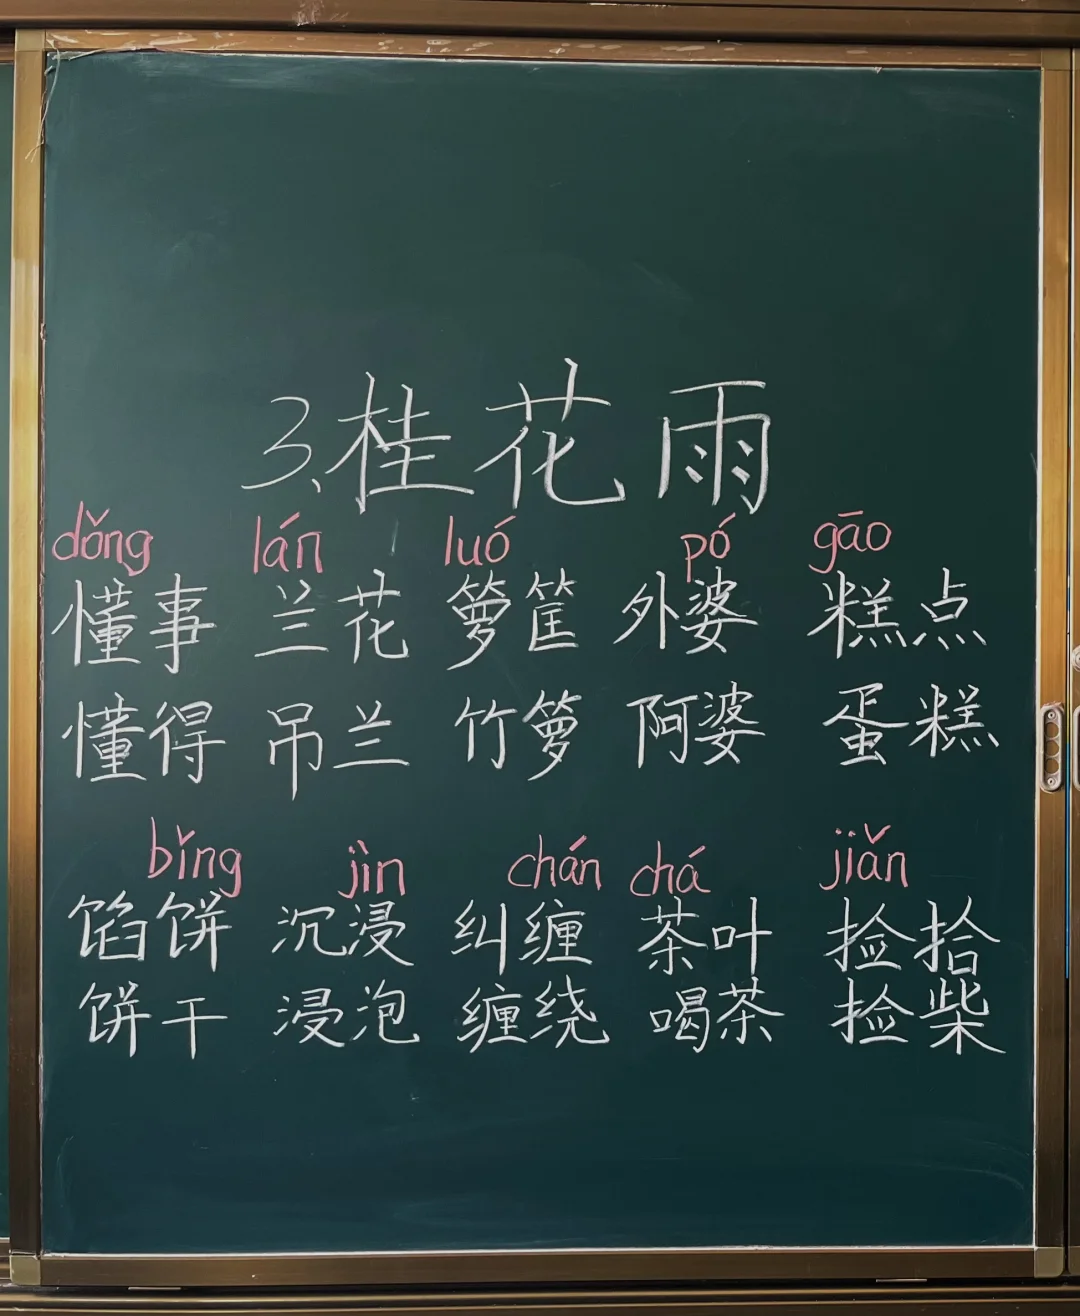 3、桂花雨
dǒng lán luó pó gāo
懂事 兰花 箩筐 外婆 糕点
懂得 吊兰 竹箩 阿婆 蛋糕
bǐng jìn chán chá jiǎn
馅饼 沉浸 纠缠 茶叶 捡拾
饼干 浸泡 缠绕 喝茶 捡柴